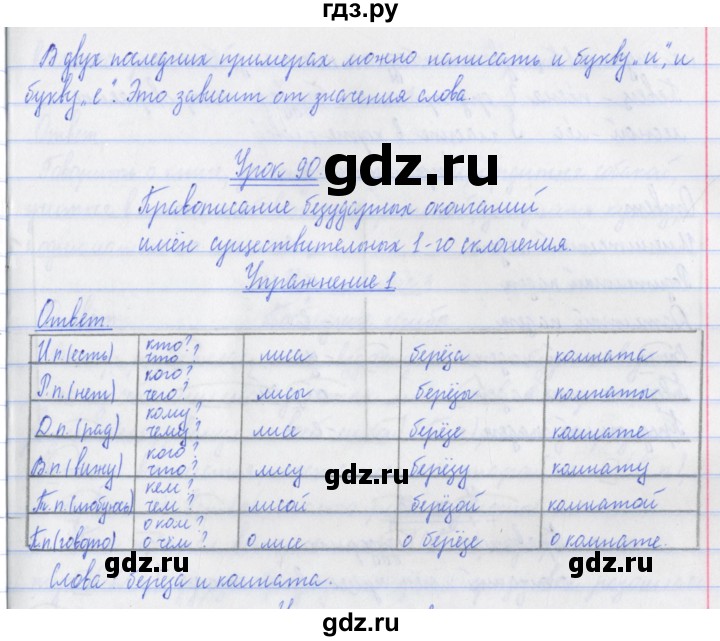 гдз.ру
В двух последних примерах можно написать и букву „и", и
букву „е". Это зависит от значения слова.
Урок 90.
gdz.ru
Правописание безударных окончаний
имён существительных 1-го склонения.
Упражнение 1
Ответ.
И.п.(есть) кто? что? лиса берёза комната
gdz.ru gdz.ru
Р.п.(нет) кого? чего? лисы берёзы комнаты
Д.п.(рад) кому? чему? лисе берёзе комнате
В.п.(вижу) кого? что? лису берёзу комнату
gdz.ru
Т.п.(любуюсь) кем? чем? лисой берёзой комнатой
П.п(говорю) о ком? о чём? о лисе о берёзе о комнате.
gdz.ru gdz.ru
Слова берёза и комната.
gdz.ru